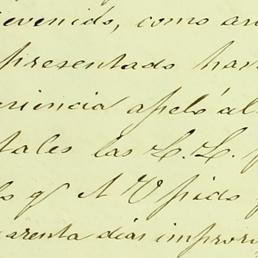 evenido, como ar
presentado han
eriencia apeló al
tales las L. L.
lo q A V pido
arenta dias improrr